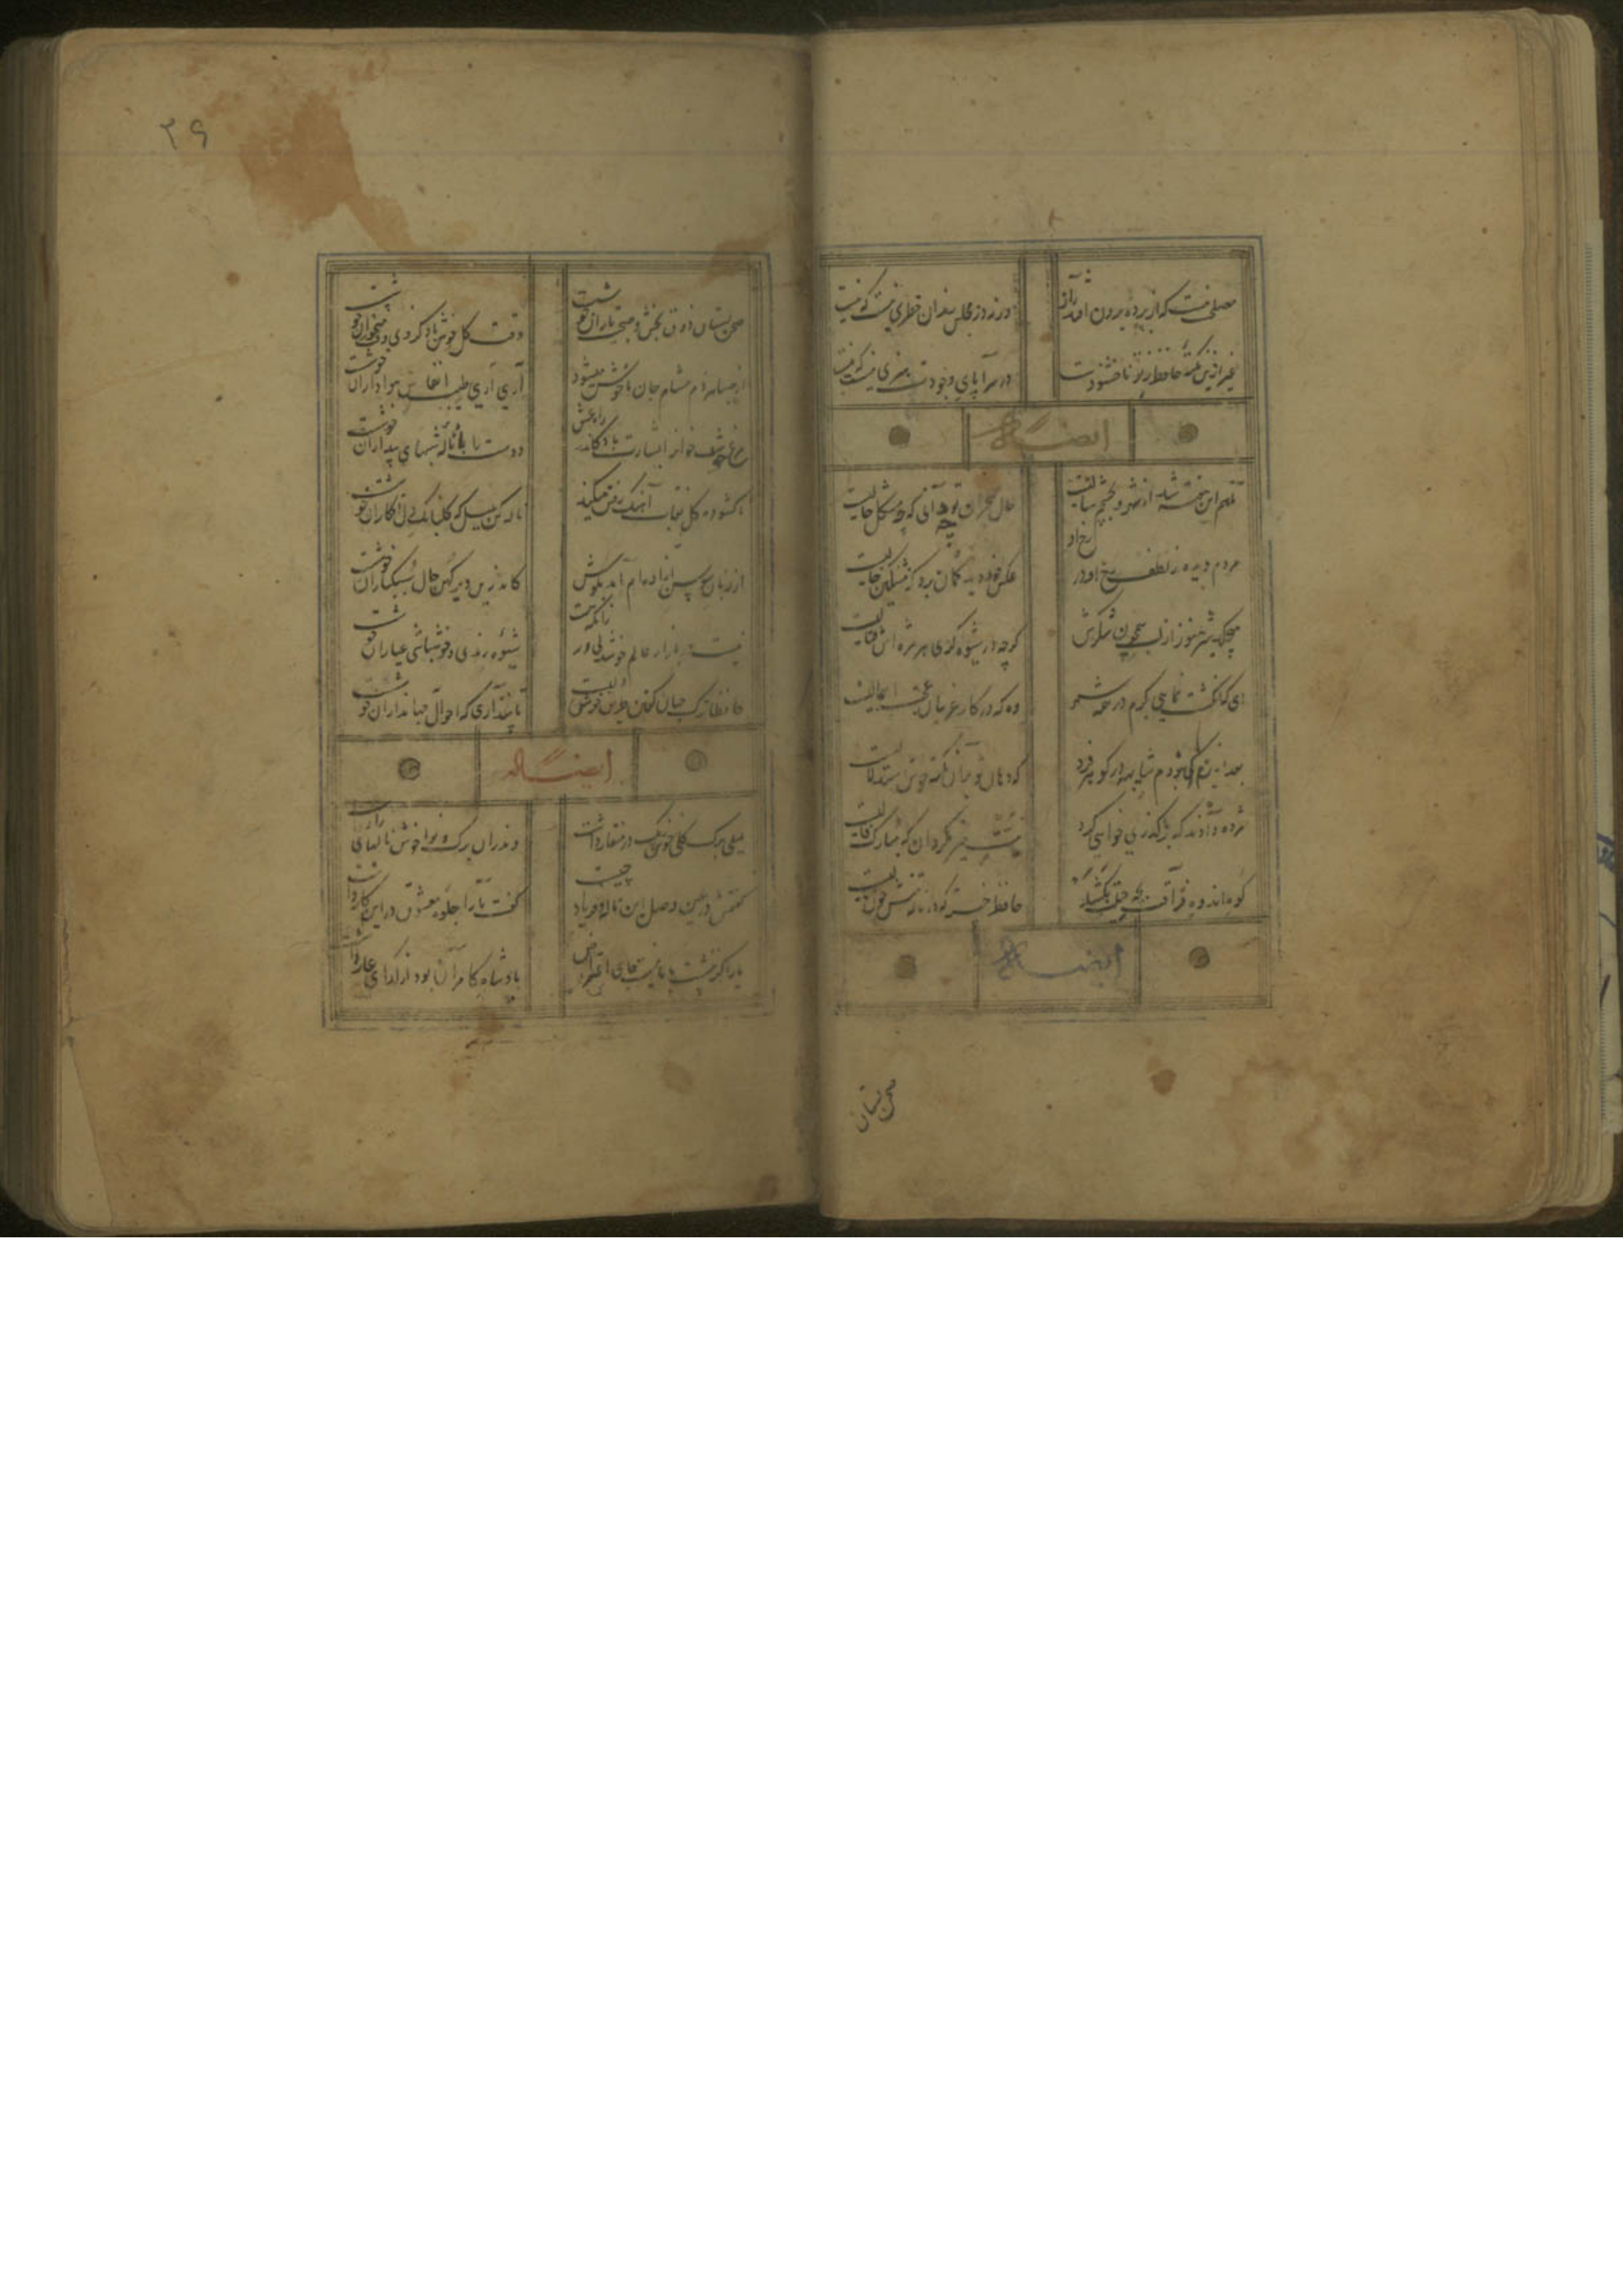 مصلحت نیست که از پرده برون افتد راز
ورنه در مجلس رندان خبری نیست که نیست
غیر ازین نکته که حافظ ز تو ناخشنودست
در سراپای وجودت هنری نیست که نیست
ایضاً له
حال هجران تو چه دانی که چه مشکل حالیست
مردم دیده ز لطف رخ او در رخ او
عکس خود دید گمان برد که مشکین خالیست
میچکد شیر هنوز از لب همچون شکرش
گرچه در شیوه‌گری هر مژه‌اش قتالیست
ای که انگشت‌نمایی بکرم در همه شهر
وه که در کار غریبان عجبت اهمالیست
بعد ازینم نبود شایبه در جوهر فرد
که دهان تو بدان نکته خوش استدلالیست
مژده دادند که بر ما گذری خواهی کرد
نیت خیر مگردان که مبارک فالیست
کوه اندوه فراقت بچه حیلت بکشد
حافظ خسته که از ناله تنش چون نالیست
ایضاً له
صحن بستان
۲۶
صحن بستان ذوق بخش و صحبت یاران خوشست
وقت گل خوش باد کز وی وقت میخواران خوشست
از صبا هر دم مشام جان ما خوش میشود
آری آری طیب انفاس هواداران خوشست
ناگشوده گل نقاب آهنگ رفتن میکند
ناله کن بلبل که گلبانگ دل افکاران خوشست
مرغ خوشخوان را بشارت باد کاندر راه عشق
دوست را با ناله شبهای بیداران خوشست
از زبان سوسن آزاده‌ام آمد بگوش
کاندرین دیر کهن حال سبکباران خوشست
نیست در بازار عالم خوشدلی ور زانکه هست
شیوه رندی و خوشباشی عیاران خوشست
حافظا ترک جهان گفتن طریق خوشدلیست
تا نپنداری که احوال جهانداران خوشست
ایضاً له
بلبلی برگ گلی خوش رنگ در منقار داشت
وندران برگ و نوا خوش نالهای زار داشت
گفتمش در عین وصل این ناله و فریاد چیست
گفت ما را جلوه معشوق در این کار داشت
یار اگر ننشست با ما نیست جای اعتراض
پادشاه کامران بود از گدای عار داشت